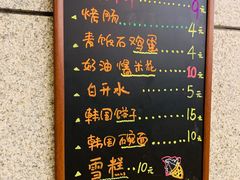 9元
烤肠 4元
麦饭石鸡蛋 4元
奶油爆米花 10元
白开水 5元
韩国饺子 15元
韩国碗面 10元
雪糕 10元